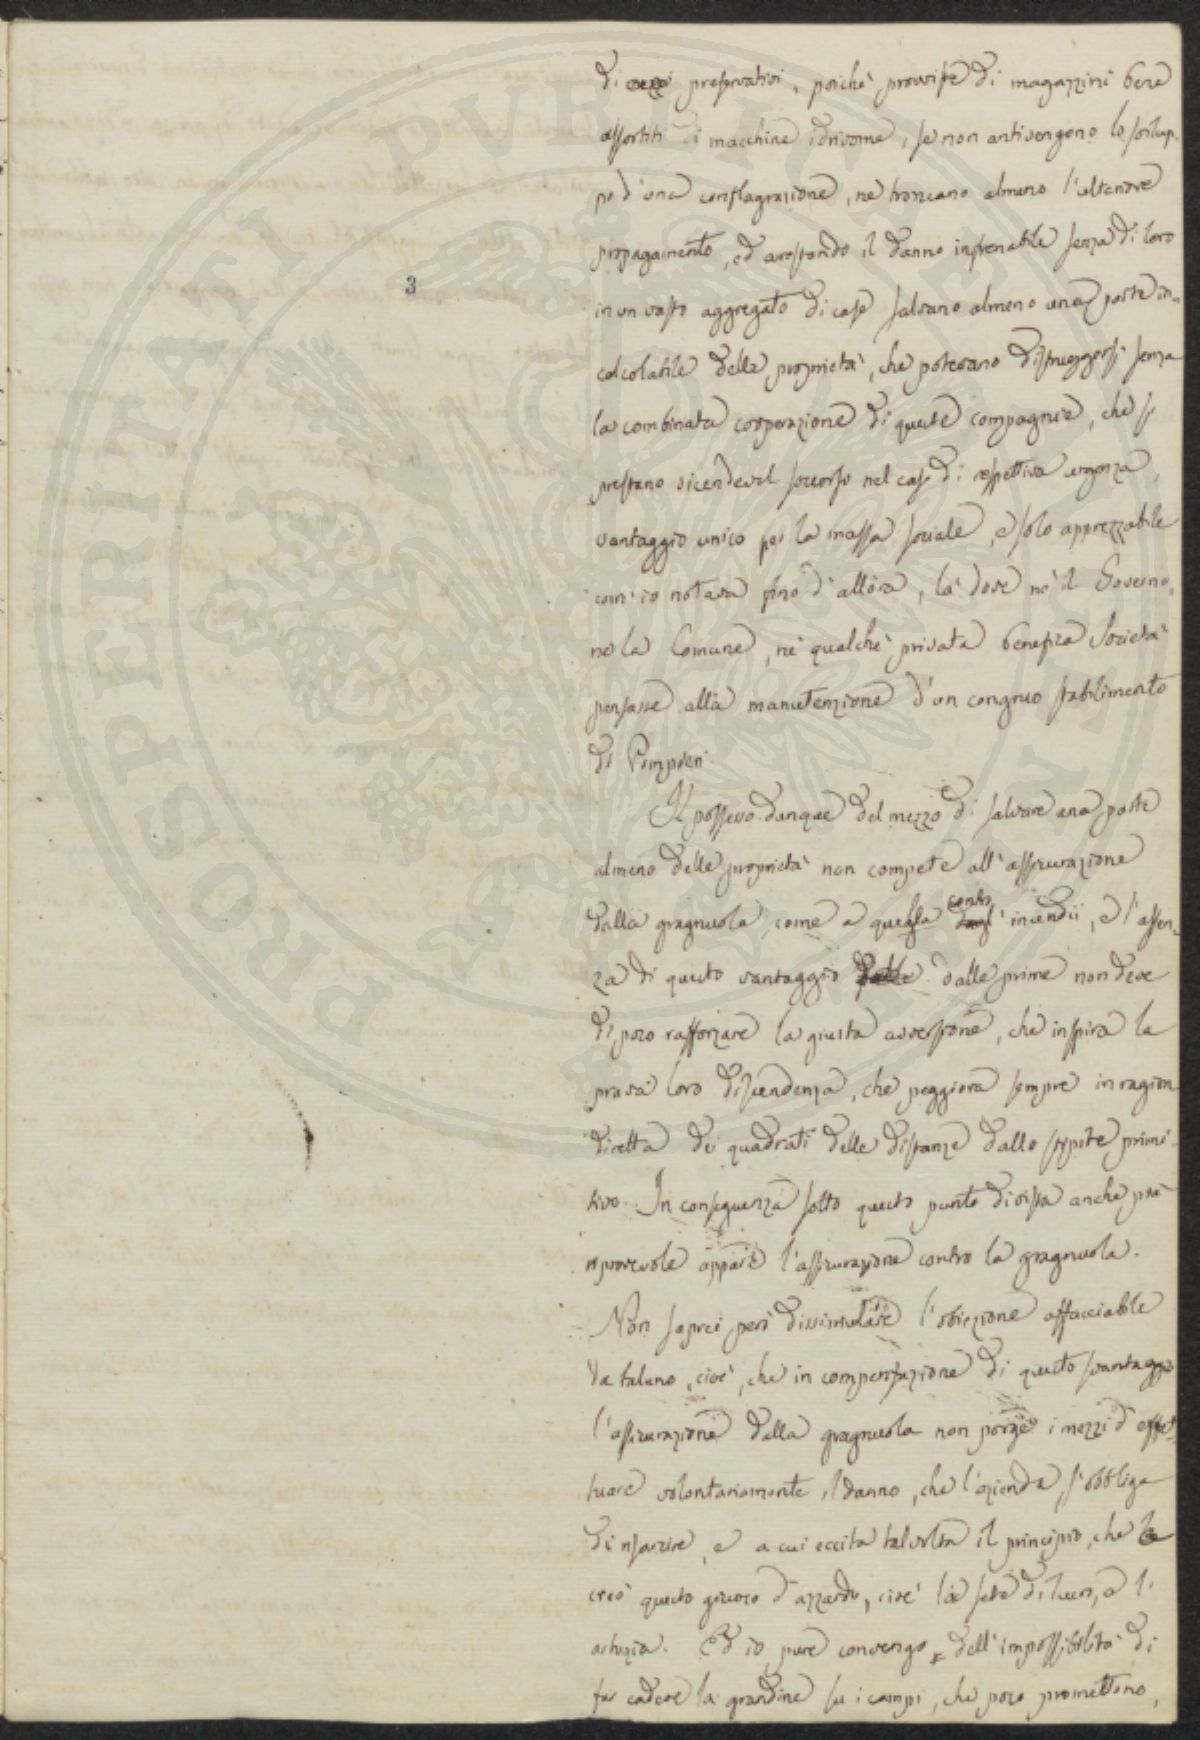 di preservativi, poichè provviste di magazzini bene
assortiti di macchine idrivome, se non antivengono lo svilup-
po d'una conflagrazione, ne troncano almeno l'ulteriore
propagamento, ed arrestando il danno infrenabile senza di loro
3
in un vasto aggregato di case salvano almeno una parte in-
calcolabile delle proprietà, che potevano distruggersi senza
la combinata cooperazione di queste compagnie, che si
prestano vicendevol soccorso nel caso di respettiva urgenza,
vantaggio unico per la massa sociale, e solo apprezzabile
com'io notava fino d'allora, là dove nè il Governo,
nè la Comune, nè qualche privata benefica Società
pensasse alla manutenzione d'un congruo stabilimento
di Pompieri
Il possesso dunque del mezzo di salvare una parte
almeno delle proprietà non compete all'assicurazione
dalla gragnuola, come a quella contro gl'incendii, e l'assen-
za di questo vantaggio dalle prime non deve
di poco rafforzare la giusta avversione, che inspira la
prava loro discendenza, che peggiora sempre in ragion
diretta dei quadrati delle distanze dallo stipite primi-
tivo. In conseguenza sotto questo punto di vista anche più
riprovevole appare l'assicurazione contro la gragnuola.
Non saprei però dissimulare l'obiezione affacciabile
da taluno, cioè, che in compensazione di questo svantaggio
l'assicurazione dalla gragnuola non porge i mezzi d'effet-
tuare volontariamente il danno, che l'azienda s'obbliga
di risarcire, e a cui eccita talvolta il principio, che
creò questo giuoco d'azzardo, cioè la sete di lucro, e l'
astuzia. Ed io pure convengo dell'impossibilità di
far cadere la grandine su i campi, che poco promettono,
PROSPERITATI PVBLICAE